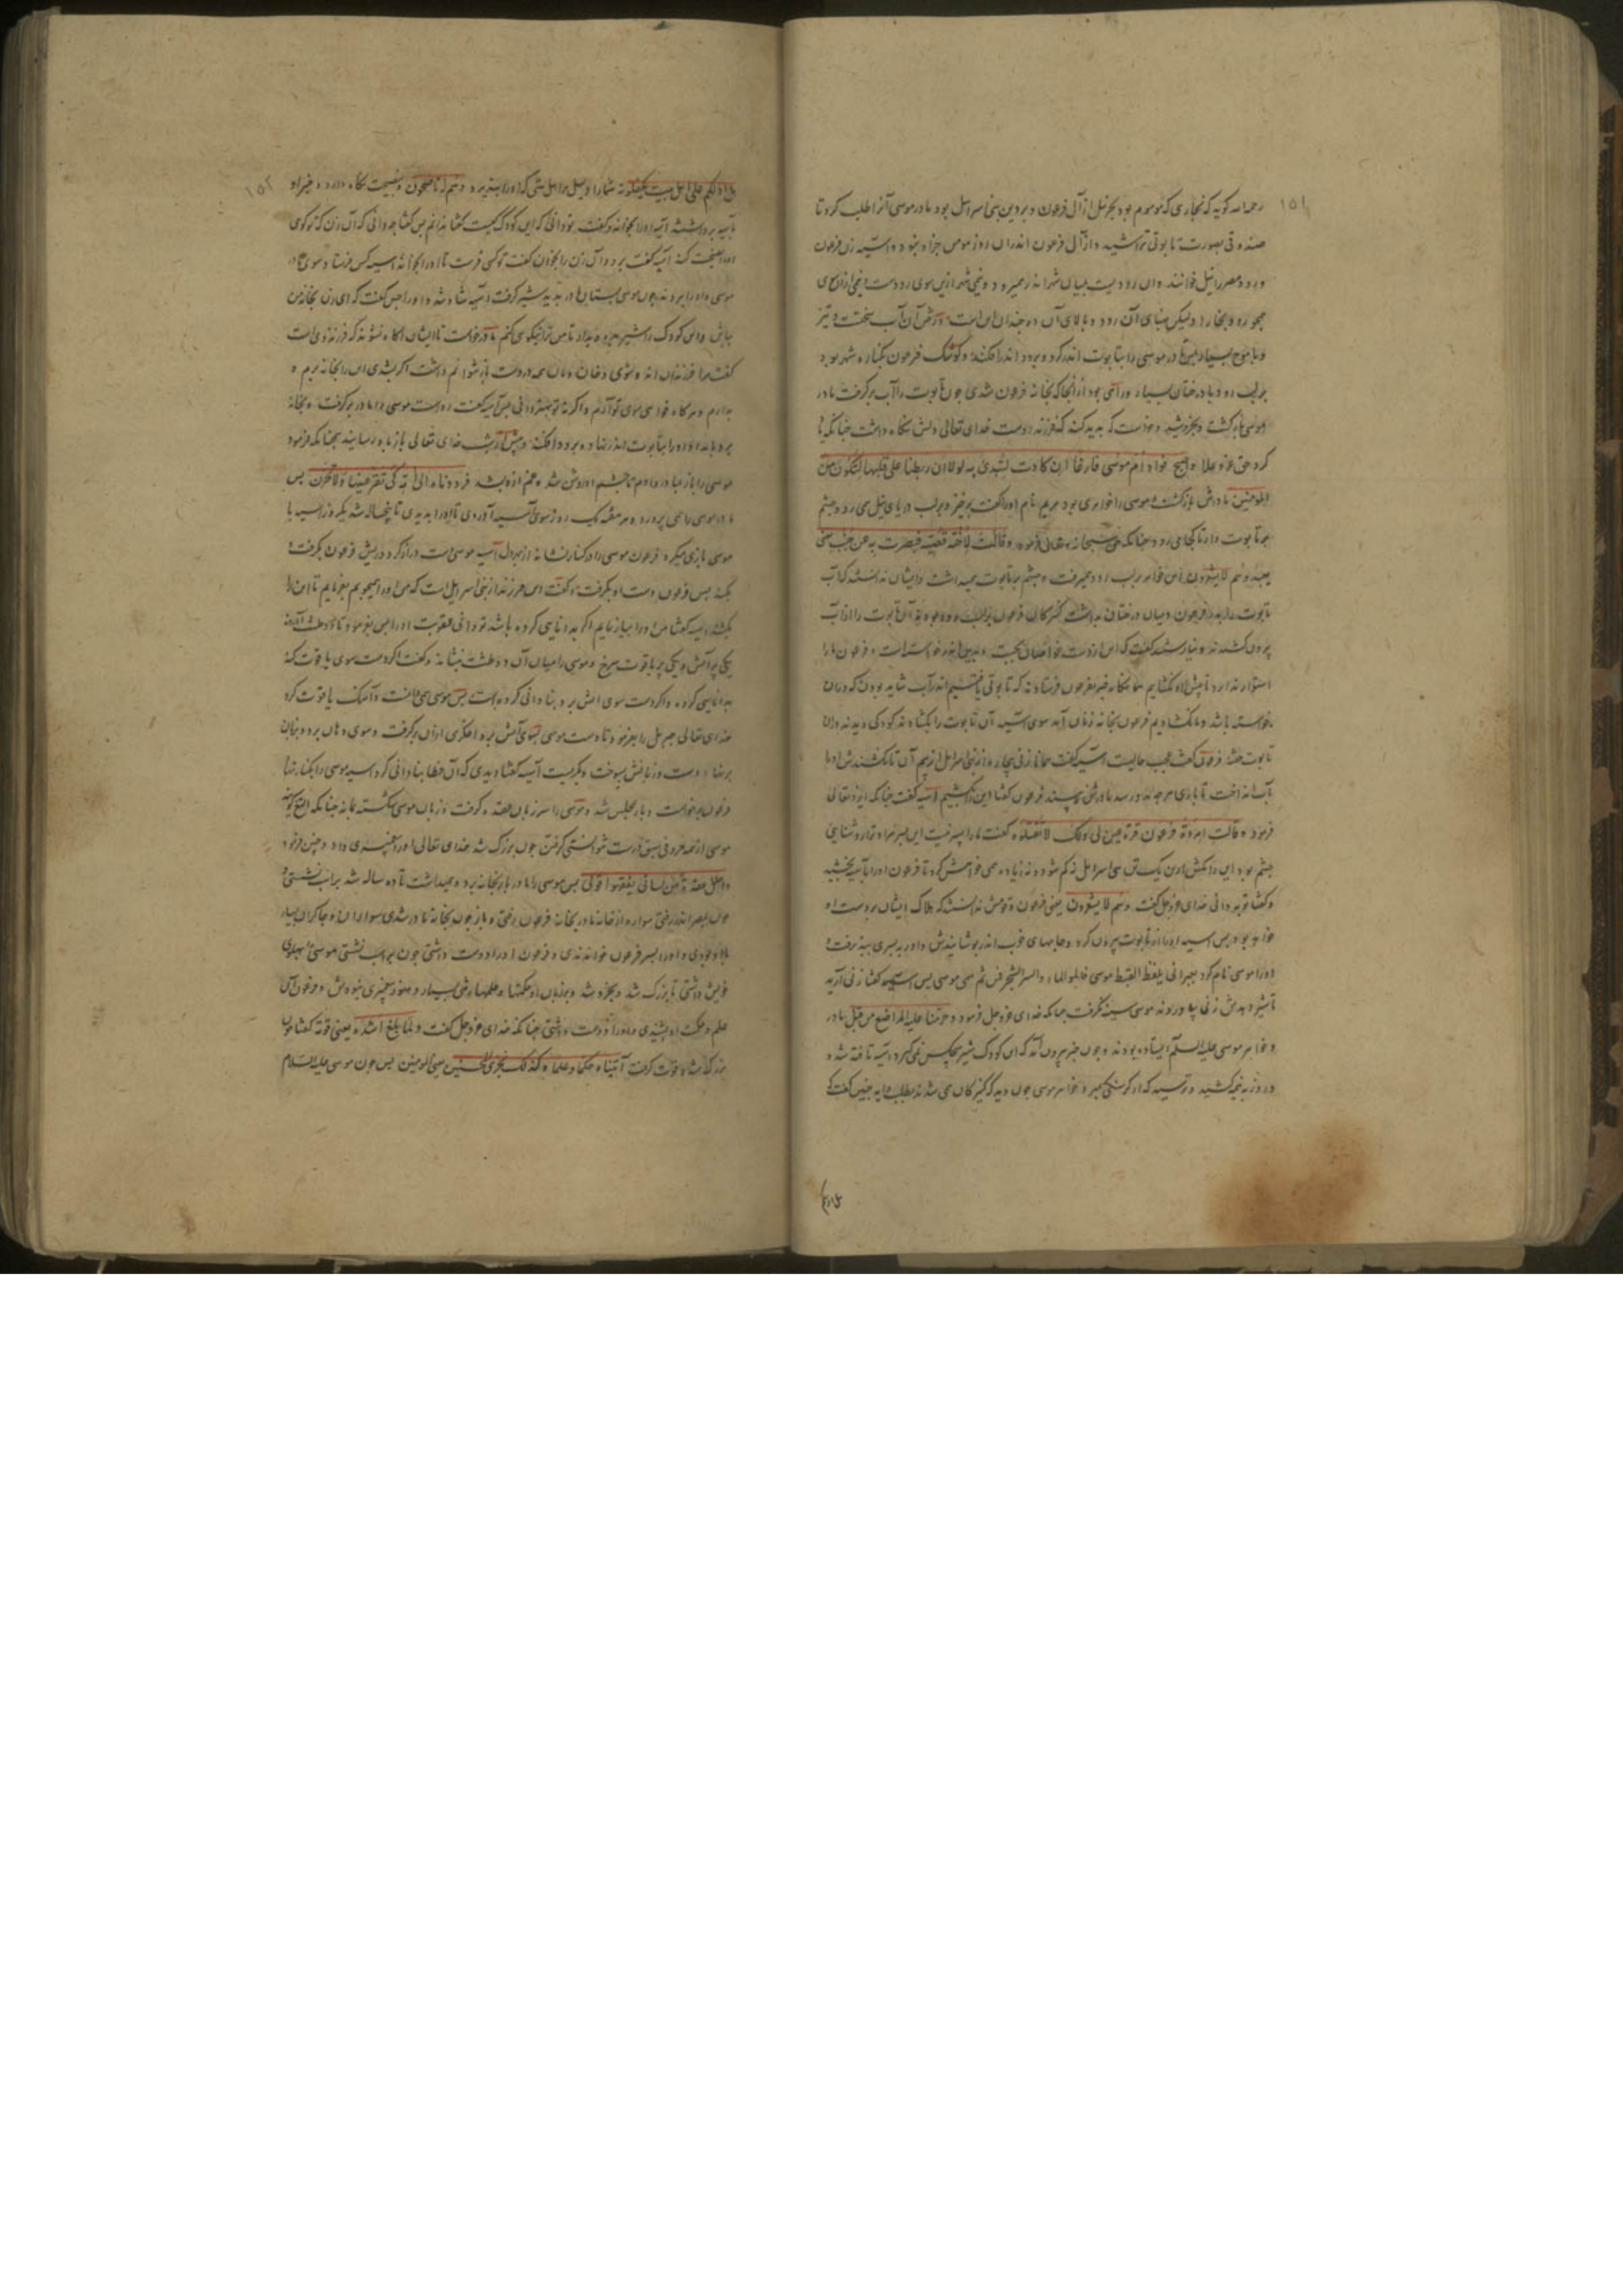 ۱۵۱
رحمه الله کوید که نجاری که موسوم بود بحزبیل از آل فرعون و بر دین بنی اسرایل بود مادر موسی آنرا طلب کرد تا
صندوقی بصورت تابوتی تراشید و از آل فرعون اندران روز مومن جز او نبود و آسیه زن فرعون
و رود مصر را نیل خوانند و آن رودیست میان شهر اندر میرود و نیمی شهر ازین سوی رودست و نیمی ازان سوی
همچو رود بخارا ولیکن پهنای آن رود و بالای آن ده چندان این است و رفتن آن آب سخت و تیز
و با موج بسیار مادر موسی را بتابوت اندر کرد و برود اندر افکند و کوشک فرعون بکناره شهر بود
بر لب رود با درختان بسیار و از آنجا که بخانه فرعون شدی چون تابوت را آب بر گرفت مادر
موسی باز گشت و خواست که پدید کند که فرزند اوست خدای تعالی دلش نگاه داشت چنانکه یاد
کرد حق عز و علا واصبح فواد ام موسی فارغا ان کادت لتبدی به لولا ان ربطنا علی قلبها لتکون من
المومنین مادرش بازگشت و موسی را خواهری بود مریم نام او را گفت برخیز و بر لب دریای نیل می رو و چشم
بر تابوت دار تا کجا می رود چنانکه حق سبحانه و تعالی فرمود و قالت لاخته قصیه فبصرت به عن جنب یعنی
بعید وهم لا یشعرون این خواهر بر لب رود میرفت و چشم بر تابوت میداشت و ایشان ندانستند که آب
تابوت را بدر فرعون و میان درختان بداشت کنیزکان فرعون بر لب رود بودند آن تابوت را از آب
بیرون کشیدند
استوار ندارد تا پیش او نگشاییم همانگاه خبر بفرعون فرستادند که تابوتی یافتیم اندر آب شاید بودن که در آن
خواسته باشد و ما نگشادیم فرعون بخانه زنان آمد سوی آسیه آن تابوت را بگشادند کودکی دیدند در آن
تابوت خفته فرعون گفت عجب حالیست آسیه گفت همانا زنی بیچاره از بنی اسرایل از بیم آن تا نکشندش او را
بآب انداخت تا باری هر چه اندر رسد مادرش نه بیند فرعون گفتا این را بکشیم آسیه گفت چنانکه ایزد تعالی
فرمود و قالت امرءة فرعون قرة عین لی ولک لا تقتلوه گفت ما را پسر نیست این پسر مرا و ترا روشنایی
چشم بود این را مکش ازین یک تن بنی اسرایل نه کم شود و نه زیاده همی خواهش کرد تا فرعون او را بآسیه بخشید
و گفتا تو به دانی خدای عز و جل گفت وهم لا یشعرون یعنی فرعون و قومش ندانستند که هلاک ایشان بر دست او
خواهد بود پس آسیه او را از تابوت بیرون کرد و جامهای خوب اندر پوشانیدش و او را به پسری بپذیرفت و
او را موسی نام کرد بعبرانی بلفظ القبط موسی فالمو الماء والسی الشجر فمن ثم سمی موسی پس آسیه گفتا زنی آرید
تا شیر دهدش زنی بیاوردند موسی سینه نگرفت چنانکه خدای عز و جل فرمود و حرمنا علیه المراضع من قبل مادر
و خواهر موسی علیه السلم ایستاده بودند و چون خبر بیرون آمد که این کودک شیر هیچکس نمی گیرد آسیه تافته شد و
و ترسید که از گرسنگی بمیرد خواهر موسی چون دید که کنیزکان می شدند بطلب دایه چنین گفت که
هل ادلکم
۱۵۲
هل ادلکم علی اهل بیت یکفلونه شما را دلیل بر اهل بیتی که او را بپذیرد وهم له ناصحون و بنصیحت نگاه دارد و خبر او
بآسیه برداشتند آسیه او را بخواند و گفت تو دانی که این کودک کیست گفتا ندانم پس گفتا چه دانی که آن زن که تو گوی
او را نصیحت کند آسیه گفت برو و آن زن را بخوان گفت تو کسی فرست تا او را بخواند آسیه کس فرستاد سوی مادر
موسی و او را بیاوردند چون موسی پستان مادر بدید شیر گرفت آسیه شاد شد و او را چنین گفت که ای زن بخانه من
بباش و این کودک را شیر میده
گفت مرا فرزندان اند و شوی و خان و مان
بدارم و هر گاه خواهی سوی تو آرم و اگر نه تو بهتر دانی پس آسیه گفت رواست موسی را مادر بر گرفت و بخانه
برد بامداد او را بتابوت اندر نهاد و برود افکند و پیش از شب خدای تعالی باز بمادر رسانید همچنانکه فرمود
موسی را باز بمادر دادم تا چشم او روشن شد و غم ازو بشد فرددناه الی امه کی تقر عینها ولا تحزن پس
مادر موسی را همی پرورد و هر هفته یک روز سوی آسیه آوردی تا او را بدیدی تا پنجساله شد یکروز آسیه با
موسی بازی میکرد فرعون موسی را در کنار بنشاند از بهر دل آسیه موسی دست دراز کرد و ریش فرعون بگرفت و
بکند پس فرعون دست او بگرفت و گفت این فرزند از بنی اسرایل است که من او را می جویم بفرمایم تا این را
بکشند آسیه گفتا من او را بیازمایم اگر بدانایی کرده باشد تو دانی عقوبت او را پس بفرمود تا دو طشت آوردند
یکی پر آتش و یکی پر یاقوت سرخ و موسی را میان آن دو طشت بنشاند و گفت اگر دست سوی یاقوت کند
بدانایی کرده و اگر دست سوی آتش برد بنادانی کرده است پس موسی همی خاست و آهنگ یاقوت کرد
خدای تعالی جبریل را بفرمود تا دست موسی بسوی آتش برد و اخگری ازان بر گرفت و سوی دهان برد و بزبان
بر نهاد دست و زبانش بسوخت و بگریست آسیه گفتا دیدی که آن خطا بنادانی کرد آسیه موسی را بکنار نهاد
فرعون برخواست و بار مجلس شد و موسی را سر زبان عقده گرفت و زبان موسی شکسته بماند چنانکه الثغ گویند
موسی از همه حروفی سین درست نتوانستی گرفتن چون بزرگ شد خدای تعالی او را پیغمبری داد و چنین فرمود
واحلل عقدة من لسانی یفقهوا قولی پس موسی را مادر باز بخانه برد و میداشت تا ده ساله شد بر اسب نشستی و
چون بمصر اندر رفتی سواره از خانه مادر بخانه فرعون رفتی و باز چون بخانه مادر شدی سواران و چاکران بسیار
با او بودی و او را پسر فرعون خواندندی و فرعون او را دوست داشتی چون بر اسب نشستی موسی را بپهلوی
خویش داشتی تا بزرگ شد و بخرد شد و بر زبان او حکمتها و علمها رفتی بسیار و هنوز پیغمبری نبودش و فرعون آن
علم و حکمت او بشنیدی و او را دوست داشتی چنانکه خدای عز و جل گفت ولما بلغ اشده یعنی قوته گفتا چون
بزرگ شد و قوت گرفت آتیناه حکما وعلما وکذلک نجزی المحسنین یعنی المومنین پس چون موسی علیه السلام